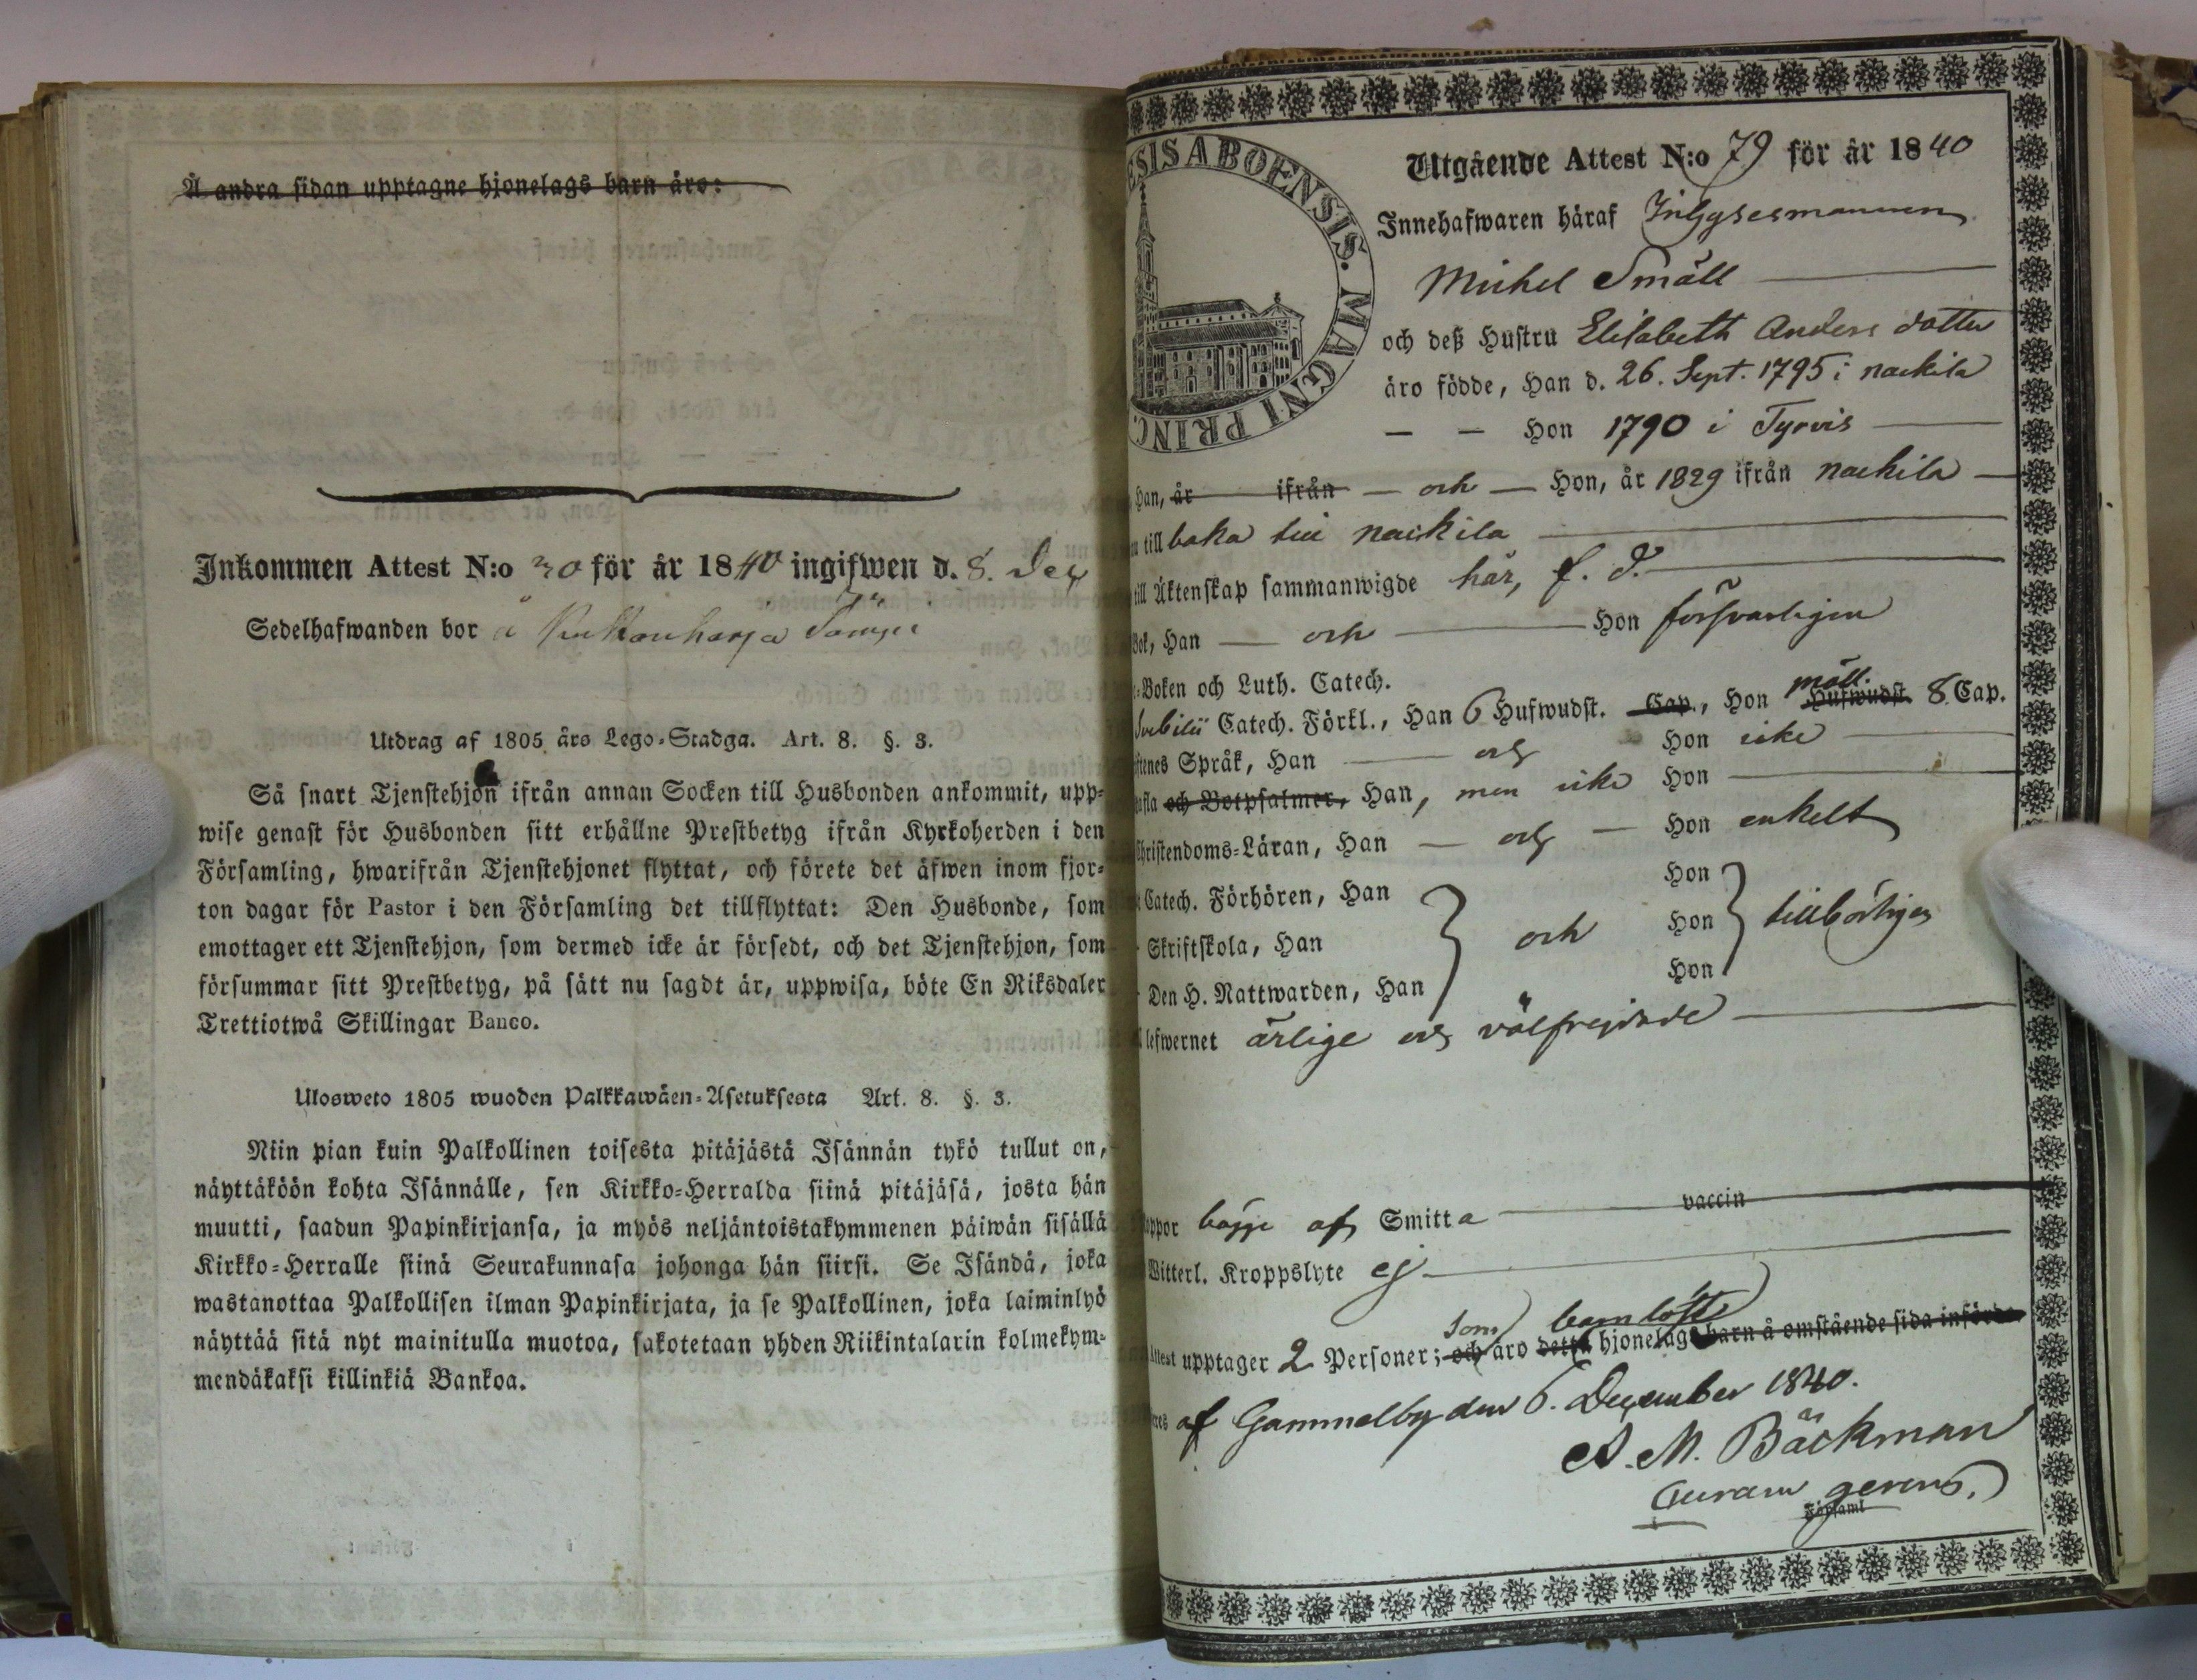 Å andra sidan upptagne hjonelags barn äro:
Inkommen Attest N:o 30 för år 1840 ingifwen d. 8. Dec
Sedelhafwanden bor å
Utdrag af 1805 års Lego-Stadga. Art. 8. §. 3.
Så snart Tjenstehjon ifrån annan Socken till Husbonden ankommit, upp-
wise genast för Husbonden sitt erhållne Prestbetyg ifrån Kyrkoherden i den
Församling, hwarifrån Tjenstehjonet flyttat, och förete det äfwen inom fjor-
ton dagar för Pastor i den Församling det tillflyttat: Den Husbonde, som
emottager ett Tjenstehjon, som dermed icke är försedt, och det Tjenstehjon, som
försummar sitt Prestbetyg, på sätt nu sagdt är, uppwisa, böte En Riksdaler
Trettiotwå Skillingar Banco.
Ulosweto 1805 wuoden Palkkawäen-Asetuksesta Art. 8. §. 3.
Niin pian kuin Palkollinen toisesta pitäjästä Isännän tykö tullut on,
näyttäköön kohta Isännälle, sen Kirkko-Herralda siinä pitäjäsä, josta hän
muutti, saadun Papinkirjansa, ja myös neljäntoistakymmenen päiwän sisällä
Kirkko-Herralle siinä Seurakunnasa johonga hän siirsi. Se Isändä, joka
wastanottaa Palkollisen ilman Papinkirjata, ja se Palkollinen, joka laiminlyö
näyttää sitä nyt mainitulla muotoa, sakotetaan yhden Riikintalarin kolmekym-
mendäkaksi killinkiä Bankoa.
ESIS ABOENSIS. MAGNI PRINC.
Utgående Attest N:o 79 för år 1840
Innehafwaren häraf Inhysesmannen
Michel Smäll
och deß Hustru Elisabeth Anders dotter
äro födde, Han d. 26. Sept. 1795 i nackila
— — Hon 1790 i Tyrvis
Han, år ifrån — och — Hon, år 1829 ifrån nackila
till baka till nackila
till Äktenskap sammanwigde här, f. d.
Bok, Han — och — Hon försvarligen
e-Boken och Luth. Catech.
Svebilii Catech. Förkl., Han 6 Hufwudst. Cap., Hon Hufwudst. mäll. 8 Cap.
ftenes Språk, Han — och Hon icke
tafla och Botpsalmer, Han, men icke Hon
Christendoms-Läran, Han — och — Hon enkelt
Catech. Förhören, Han Hon
Skriftskola, Han och Hon tillbörligen
Den H. Nattwarden, Han Hon
lefwernet ärlige och välfrejdade
oppor bägge af Smitta vaccin
Witterl. Kroppslyte ej
som barnlöste
Attest upptager 2 Personer; och äro detta hjonelags barn å omstående sida införde
af Gammelby den 6. December 1840.
A. M. Bäckman
Curam gerens.
Församl